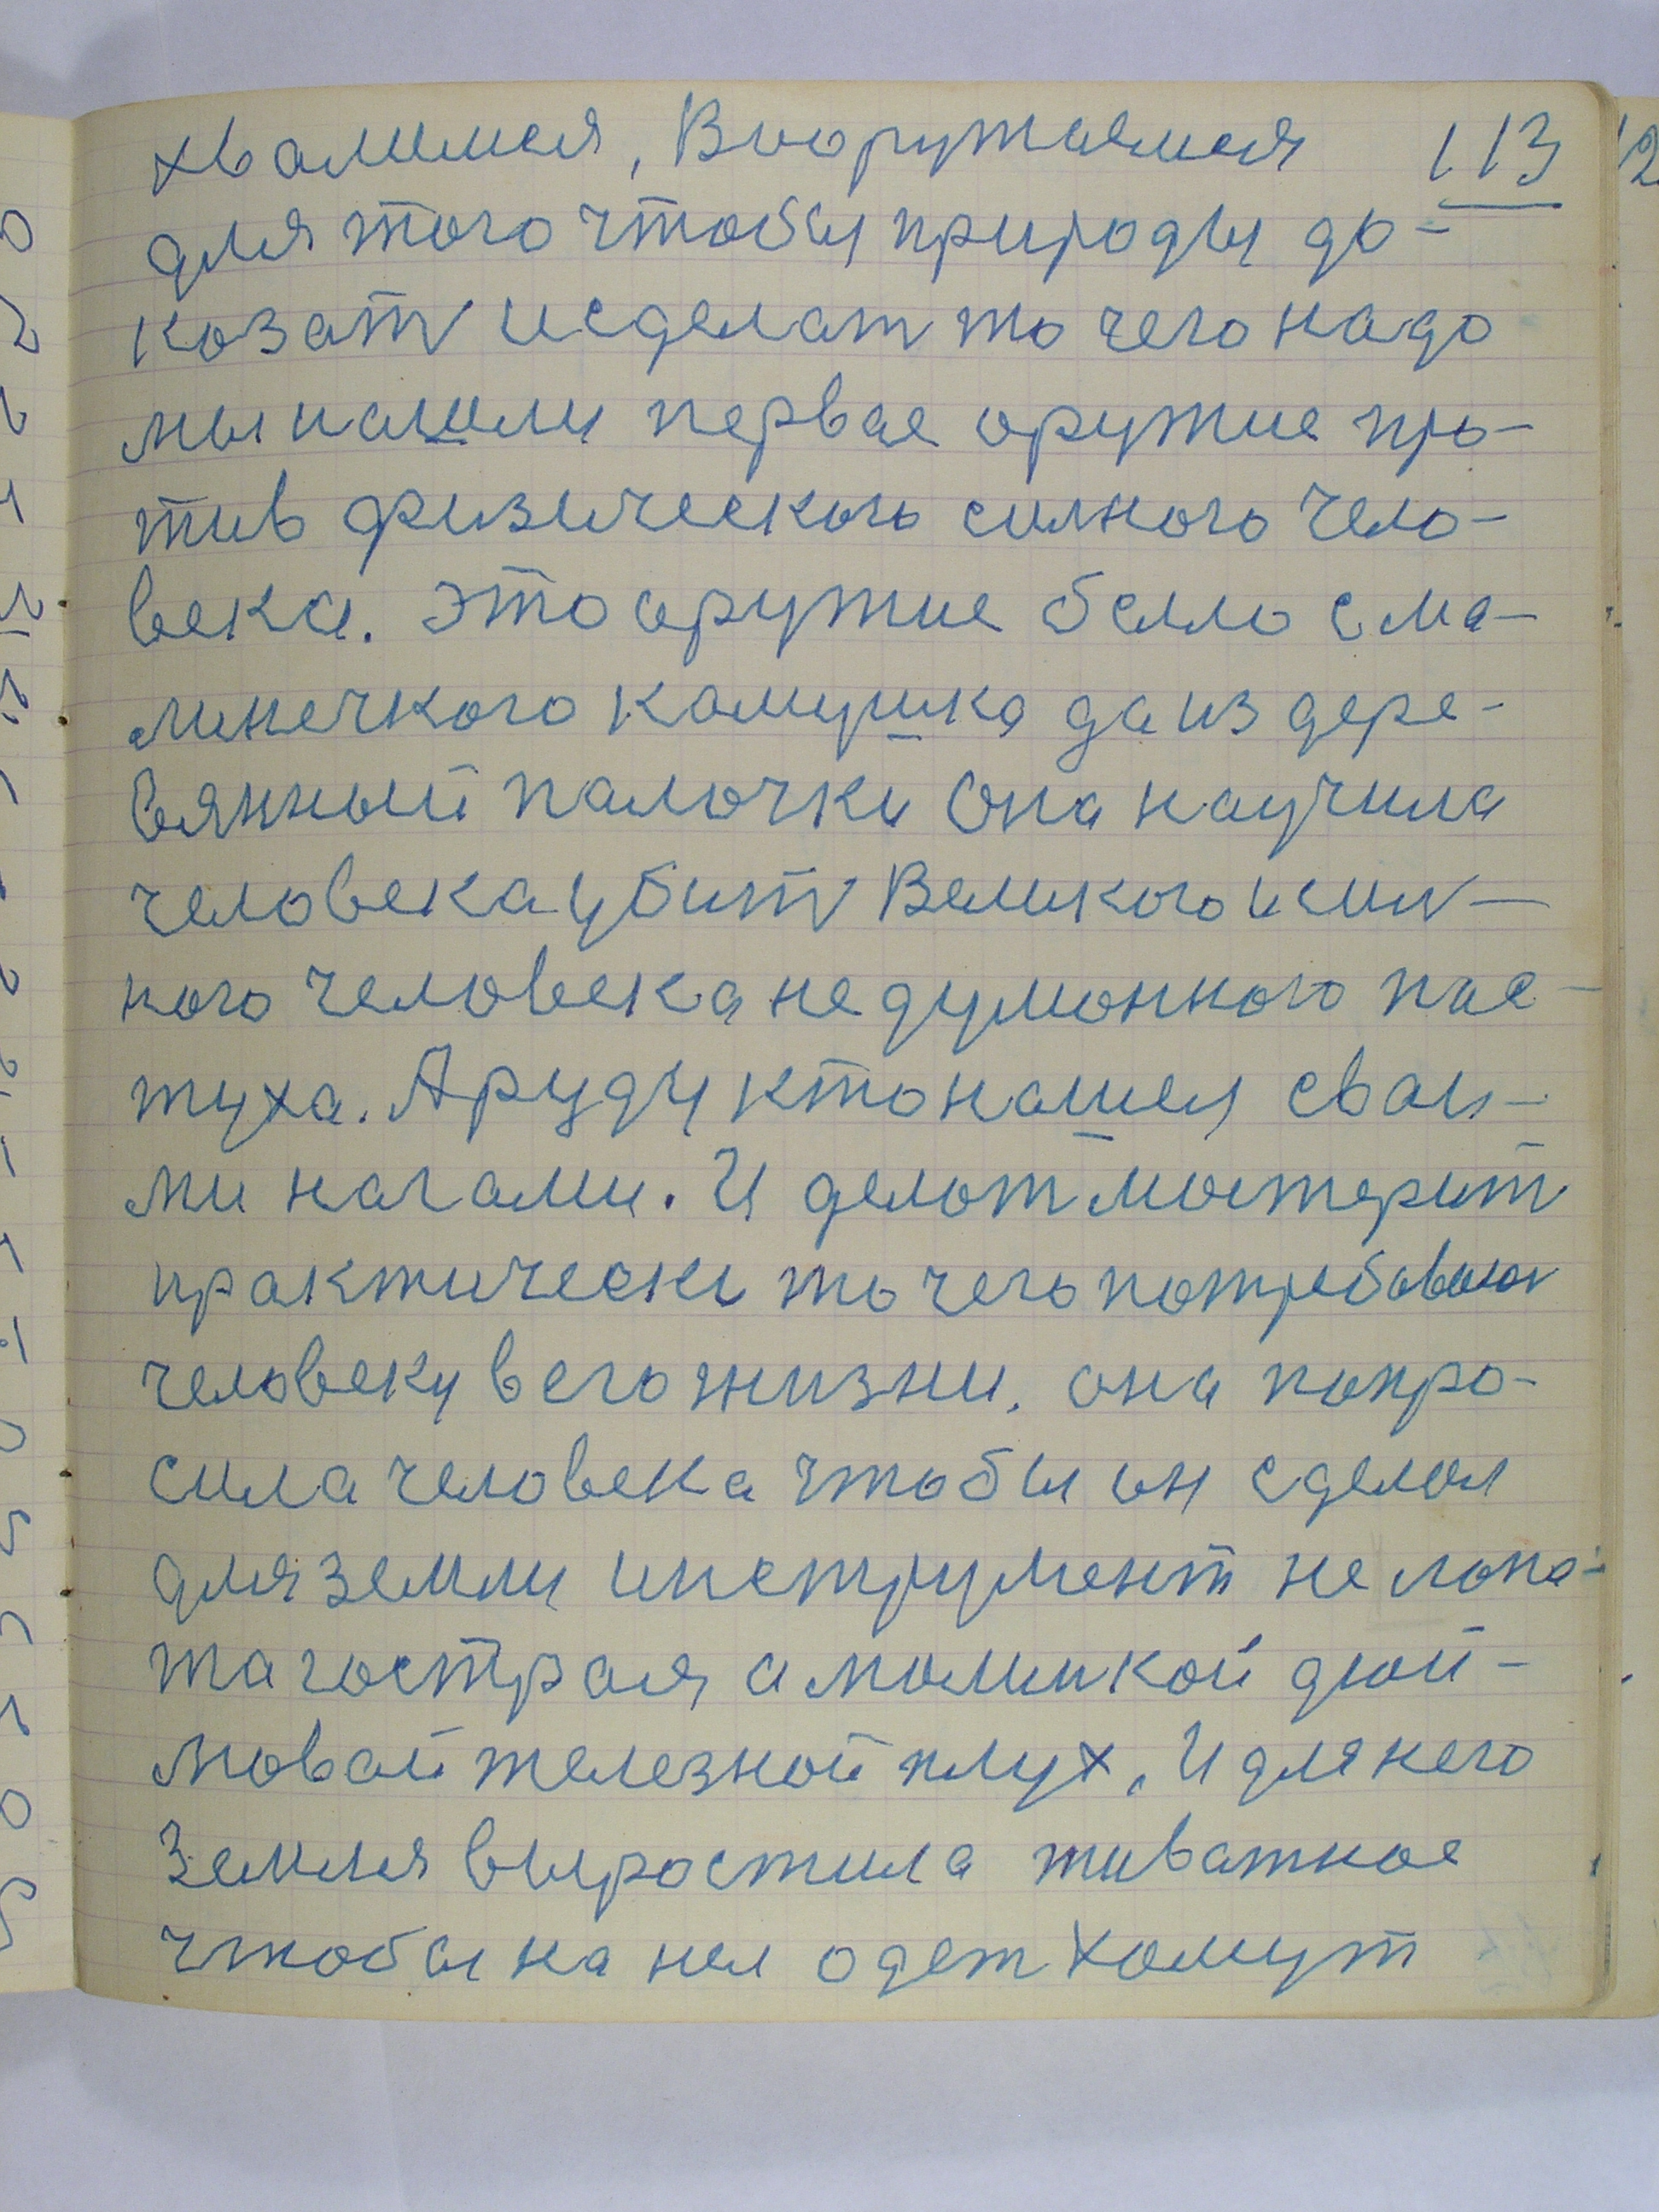 хвалимся, Вооружаемся 113
для того чтобы природы до-
козать исделат то чего надо
мы нашли первае оружие про-
тив физического силного чело-
века. Это оружие было с ма-
линечкого камушка да из дере-
вянный палочки Она научила
человека убить Великого и силь-
ного человека недумонного пас-
туха. А руду кто нашел сваи-
ми нагами. И делот мостерит
практически то чего потребовалось
человеку в его жизни. она попро-
сила человека чтобы он сделал
для земли инструмент не лопа-
та гострая а маликой дюй-
мовай железной плух, И для него
Земля выростила живатное
чтобы на нея одет хомут